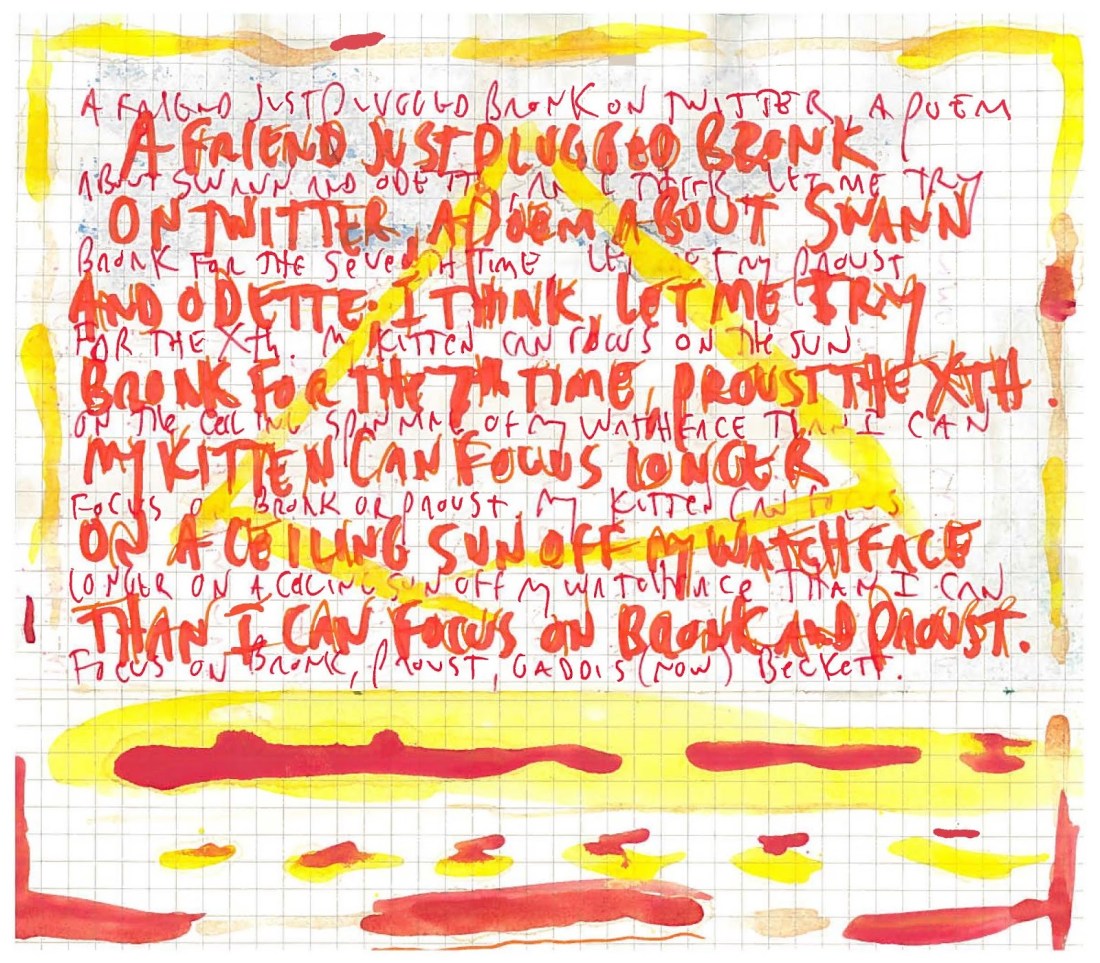 A FRIEND JUST PLUGGED BRONK ON TWITTER, A POEM
A FRIEND JUST PLUGGED BRONK
ABOUT SWANN AND ODETTE, AND I THINK LET ME TRY
ON TWITTER, A POEM ABOUT SWANN
BRONK FOR THE SEVENTH TIME LET TRY PROUST
AND ODETTE. I THINK, LET ME TRY
FOR THE Xth. MY KITTEN CAN FOCUS ON THE SUN
BRONK FOR THE 7TH TIME, PROUST THE XTH.
ON THE CEILING OF MY WATCHFACE THAN I CAN
MY KITTEN CAN FOCUS LONGER
FOCUS ON BRONK OR PROUST. MY KITTEN CAN FOCUS
ON A CEILING SUN OFF MY WATCHFACE
LONGER ON A CEILING SUN OFF MY WATCHFACE THAN I CAN
THAN I CAN FOCUS ON BRONK AND PROUST.
FOCUS ON BRONK, PROUST, GADDIS (NOW) BECKETT.